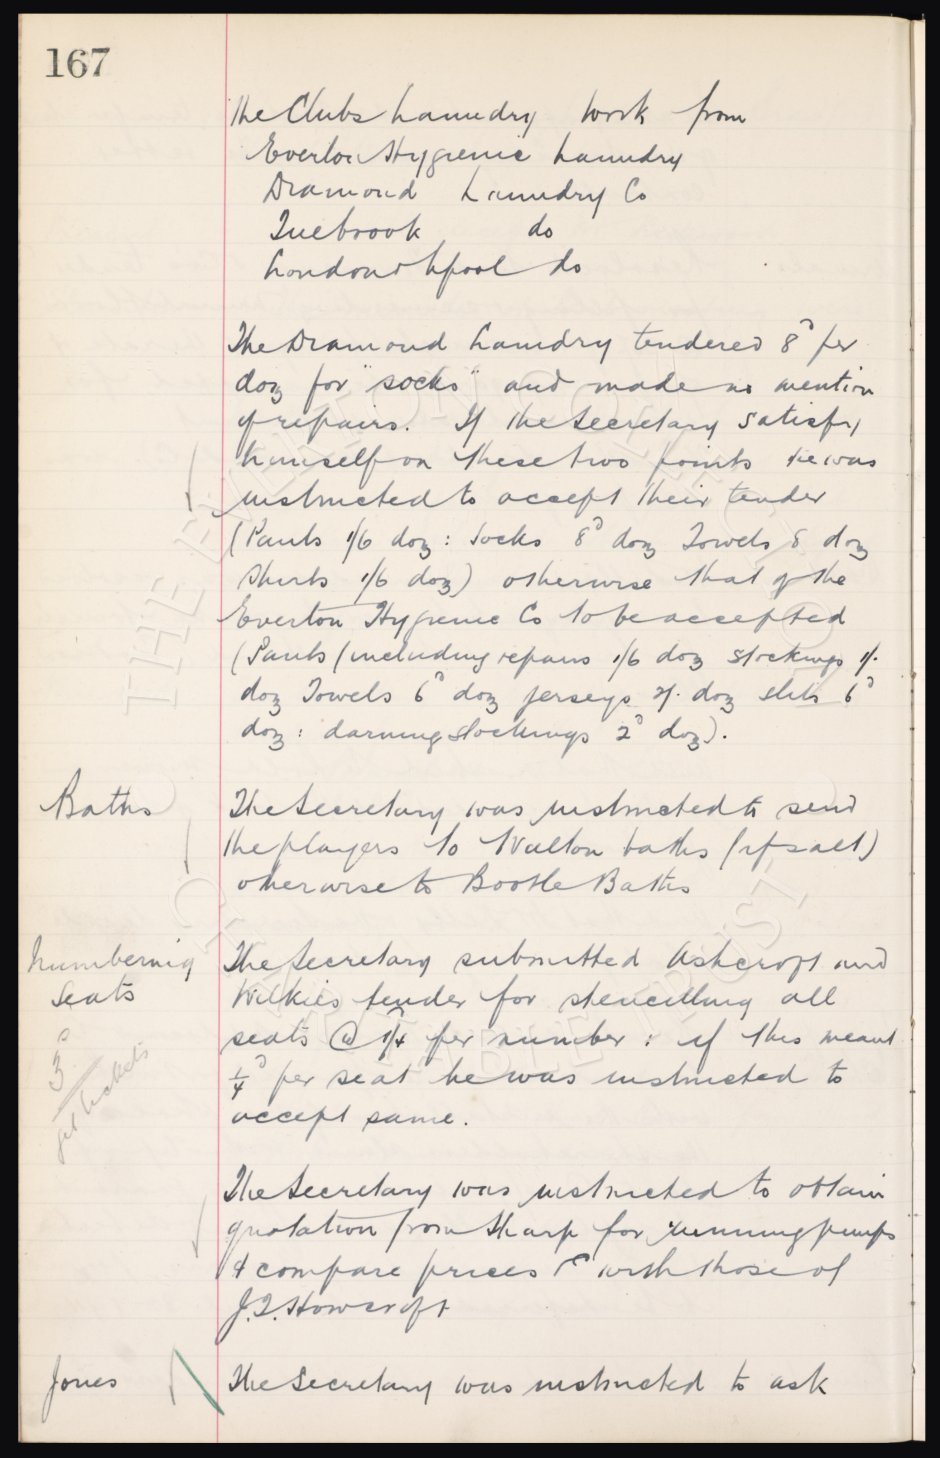 167
the Clubs Laundry work from
Everton Hygienic Laundry
Diamond Laundry Co
Tuebrook do
London & Lpool do
The Diamond Laundry tendered 8d per
doz for "socks" and made no mention
of repairs. If the Secretary satisfy
himself on these two points he was
instructed to accept their tender
(Pants 1/6 doz: socks 8d doz Towels 8 doz
Shirts 1/6 doz) otherwise that of the
Everton Hygienic Co to be accepted
(Pants (including repairs 1/6 doz stockings 1/-
doz Towels 6d doz jerseys 2/- doz slits 6d
doz: darning stockings 2d doz).
Baths
The Secretary was instructed to send
the players to Walton baths (if salt)
otherwise to Bootle Baths
Numbering
Seats
The Secretary submitted Ashcroft and
Wilkies tender for stencilling all
seats @ 1/4 per number: if this meant
1/4d per seat he was instructed to
accept same.
3d
get tickets
The Secretary was instructed to obtain
quotation from Sharp for running pumps
& compare prices with those of
J.T. Howcroft
Jones
The Secretary was instructed to ask
THE EVERTON COLLECTION
CHARITABLE TRUST